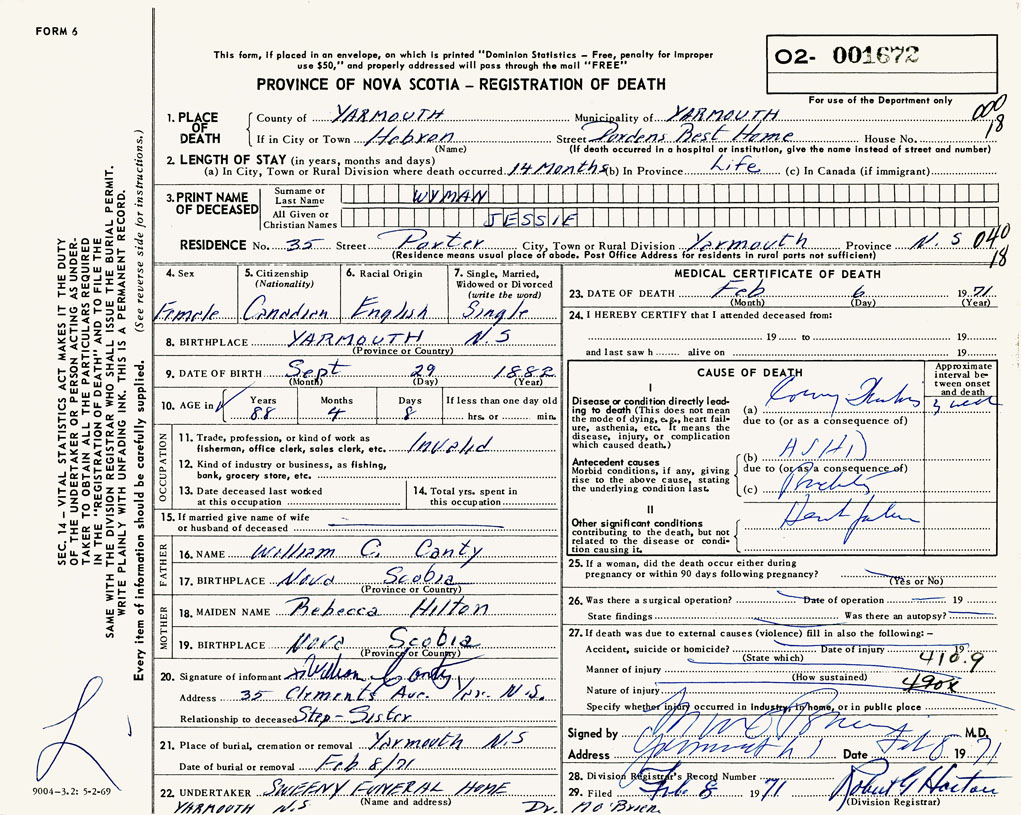 FORM 6
This form, if placed in an envelope, on which is printed "Dominion Statistics – Free, penalty for improper
use $50," and properly addressed will pass through the mail "FREE"
O2- 001672
For use of the Department only
PROVINCE OF NOVA SCOTIA – REGISTRATION OF DEATH
000
18
1. PLACE OF DEATH
County of YARMOUTH Municipality of YARMOUTH
If in City or Town Hebron Street Pordens Best Home House No.
(Name) (If death occurred in a hospital or institution, give the name instead of street and number)
2. LENGTH OF STAY (in years, months and days)
(a) In City, Town or Rural Division where death occurred 14 Months (b) In Province Life (c) In Canada (if immigrant)
3. PRINT NAME OF DECEASED
Surname or Last Name WYMAN
All Given or Christian Names JESSIE
RESIDENCE No. 35 Street Porter City, Town or Rural Division Yarmouth Province N.S 040
18
(Residence means usual place of abode. Post Office Address for residents in rural parts not sufficient)
SEC. 14 – VITAL STATISTICS ACT MAKES IT THE DUTY
OF THE UNDERTAKER OR PERSON ACTING AS UNDER-
TAKER TO OBTAIN ALL THE PARTICULARS REQUIRED
IN THE "REGISTRATION OF DEATH" AND TO FILE THE
SAME WITH THE DIVISION REGISTRAR WHO SHALL ISSUE THE BURIAL PERMIT.
WRITE PLAINLY WITH UNFADING INK. THIS IS A PERMANENT RECORD.
Every item of information should be carefully supplied. (See reverse side for instructions.)
4. Sex
Female
5. Citizenship
(Nationality)
Canadian
6. Racial Origin
English
7. Single, Married,
Widowed or Divorced
(write the word)
Single
8. BIRTHPLACE YARMOUTH N.S
(Province or Country)
9. DATE OF BIRTH Sept 29 1882
(Month) (Day) (Year)
10. AGE in
Years 88
Months 4
Days 8
If less than one day old
hrs. or min.
OCCUPATION
11. Trade, profession, or kind of work as
fisherman, office clerk, sales clerk, etc. Invalid
12. Kind of industry or business, as fishing,
bank, grocery store, etc.
13. Date deceased last worked
at this occupation
14. Total yrs. spent in
this occupation
15. If married give name of wife
or husband of deceased
FATHER
16. NAME William C. Canty
17. BIRTHPLACE Nova Scobia
(Province or Country)
MOTHER
18. MAIDEN NAME Rebecca Hilton
19. BIRTHPLACE Nova Scobia
(Province or Country)
20. Signature of informant William Canty
Address 35 Clements Ave. Yar. N.S.
Relationship to deceased Step-Sister
21. Place of burial, cremation or removal Yarmouth N.S
Date of burial or removal Feb 8/71
22. UNDERTAKER SWEENY FUNERAL HOME
(Name and address)
YARMOUTH N.S
9004-3.2: 5-2-69
MEDICAL CERTIFICATE OF DEATH
23. DATE OF DEATH Feb 6 1971
(Month) (Day) (Year)
24. I HEREBY CERTIFY that I attended deceased from:
19 to 19
and last saw h alive on 19
CAUSE OF DEATH
Approximate
interval be-
tween onset
and death
I
Disease or condition directly lead-
ing to death (This does not mean
the mode of dying, e.g., heart fail-
ure, asthenia, etc. It means the
disease, injury, or complication
which caused death.)
(a)
due to (or as a consequence of)
Antecedent causes
Morbid conditions, if any, giving
rise to the above cause, stating
the underlying condition last.
(b) ASHD
due to (or as a consequence of)
(c)
II
Other significant conditions
contributing to the death, but not
related to the disease or condi-
tion causing it.
25. If a woman, did the death occur either during
pregnancy or within 90 days following pregnancy?
(Yes or No)
26. Was there a surgical operation? Date of operation 19
State findings Was there an autopsy?
27. If death was due to external causes (violence) fill in also the following:–
Accident, suicide or homicide? Date of injury 19
(State which)
410.9
Manner of injury
(How sustained)
Nature of injury
Specify whether injury occurred in industry, in home, or in public place
Signed by M.D.
Address Yarmouth N S Date Feb 8 1971
28. Division Registrar's Record Number
29. Filed Feb 8 1971 Robert G Horton
(Division Registrar)
Dr. M O'Brien